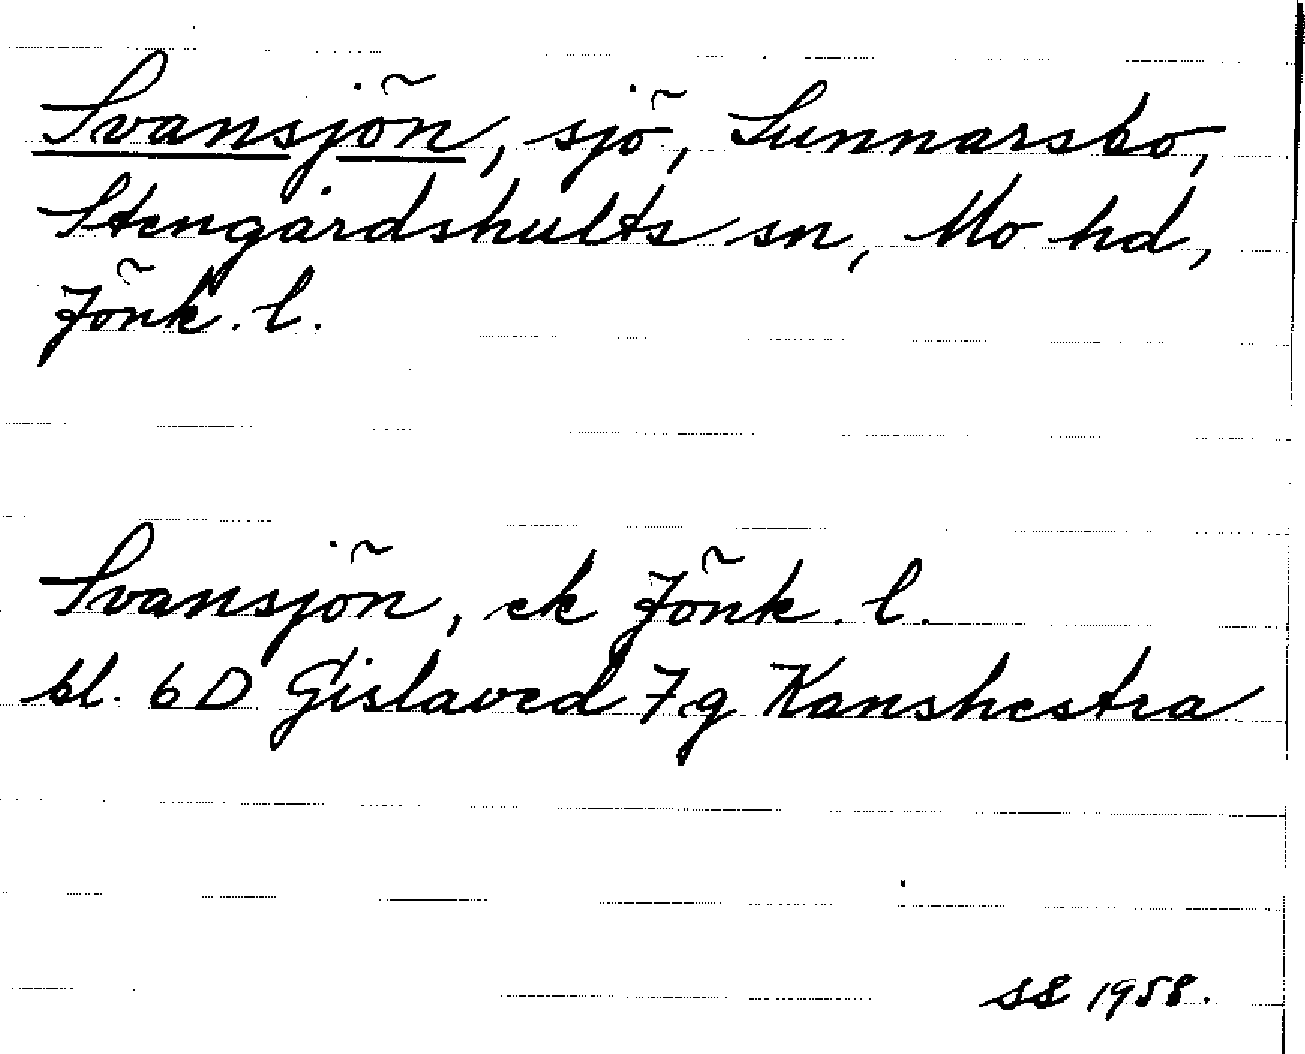 Svansjön, sjö, Sunnarsbo,
Stengårdshults sn, Mo hd,
Jönk. l.
Svansjön, ek Jönk. l.
bl. 6D Gislaved 7g Kanshestra
SE 1958.